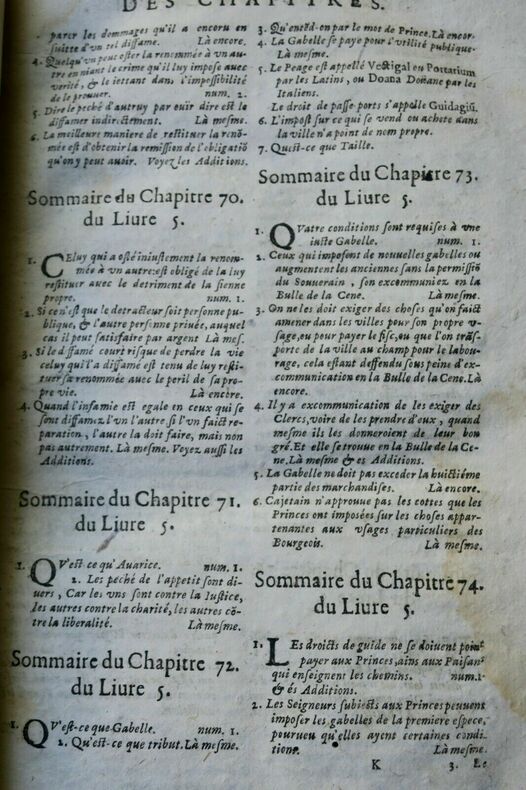 DES CHAPITRES.
parer les dommages qu'il a encoru en
suitte d'vn tel diffame. Là encore.
4. Quelqu'vn peut oster la renommée à vn au-
tre en niant le crime qu'il luy impose avec
verité, & le iettant dans l'impossibilité
de le prouuer. num. 2.
5. Dire le peché d'autruy par ouïr dire est le
diffamer indirectement. Là mesme.
6. La meilleure maniere de restituer la renō-
mée est d'obtenir la remission de l'obligatiō
qu'on y peut auoir. Voyez les Additions.
Sommaire du Chapitre 70.
du Liure 5.
1. CEluy qui a osté iniustement la renom-
mée à vn autre: est obligé de la luy
restituer avec le detriment de la sienne
propre. num. 1.
2. Si ce n'est que le detracteur soit personne pu-
blique, & l'autre personne privée, auquel
cas il peut satisfaire par argent Là mes.
3. Si le diffamé court risque de perdre la vie
celuy qui l'a diffamé est tenu de luy resti-
tuer sa renommée avec le peril de sa pro-
pre vie. Là encore.
4. Quand l'infamie est egale en ceux qui se
sont diffamez l'vn l'autre si l'vn faict re-
paration, l'autre la doit faire, mais non
pas autrement. Là mesme. Voyez aussi les
Additions.
Sommaire du Chapitre 71.
du Liure 5.
1. QV'est ce qu'Auarice. num. 1.
2. Les peché de l'appetit sont di-
uers, Car les vns sont contre la Iustice,
les autres contre la charité, les autres cō-
tre la liberalité. Là mesme.
Sommaire du Chapitre 72.
du Liure 5.
1. QV'est-ce que Gabelle. num. 1.
2. Qu'est-ce que tribut. Là mesme.
3. Qu'entēd-on par le mot de Prince. Là encor.
4. La Gabelle se paye pour l'vtilité publique.
Là mesme.
5. Le Peage est appellé Vectigal ou Portarium
par les Latins, ou Doana Doüane par les
Italiens.
Le droit de passe ports s'appelle Guidagiū.
6. L'impost sur ce qui se vend ou achete dans
la ville n'a point de nom propre.
7. Quest-ce que Taille.
Sommaire du Chapitre 73.
du Liure 5.
1. QVatre conditions sont requises à vne
iuste Gabelle. num. 1.
2. Ceux qui imposent de nouuelles gabelles ou
augmentent les anciennes sans la permissiō
du Souuerain, son excommuniez en la
Bulle de la Cene. Là mesme.
3. On ne les doit exiger des choses qu'on faict
amener dans les villes pour son propre v-
sage, eu pour payer le fisc, eu que l'on trās-
porte de la ville au champ pour le labou-
rage, cela estant deffendu sous peine d'ex-
communication en la Bulle de la Cene. Là
encore.
4. Il y a excommunication de les exiger des
Clercs, voire de les prendre d'eux, quand
mesme ils les donneroient de leur bon
gré. Et elle se trouue en la Bulle de la Ce-
ne. Là mesme & es Additions.
5. La Gabelle ne doit pas exceder la huictiéme
partie des marchandises. Là encore.
6. Cajetain n'approuue pas les cottes que les
Princes ont imposées sur les choses appar-
tenantes aux vsages particuliers des
Bourgeois. Là mesme.
Sommaire du Chapitre 74.
du Liure 5.
1. LEs droicts de guide ne se doiuent point
payer aux Princes, ains aux Paisans
qui enseignent les chemins. num. 1.
& és Additions.
2. Les Seigneurs subiects aux Princes peuuent
imposer les gabelles de la premiere espece,
pourueu qu'elles ayent certaines condi-
tions. Là mesme.
K 3. Le